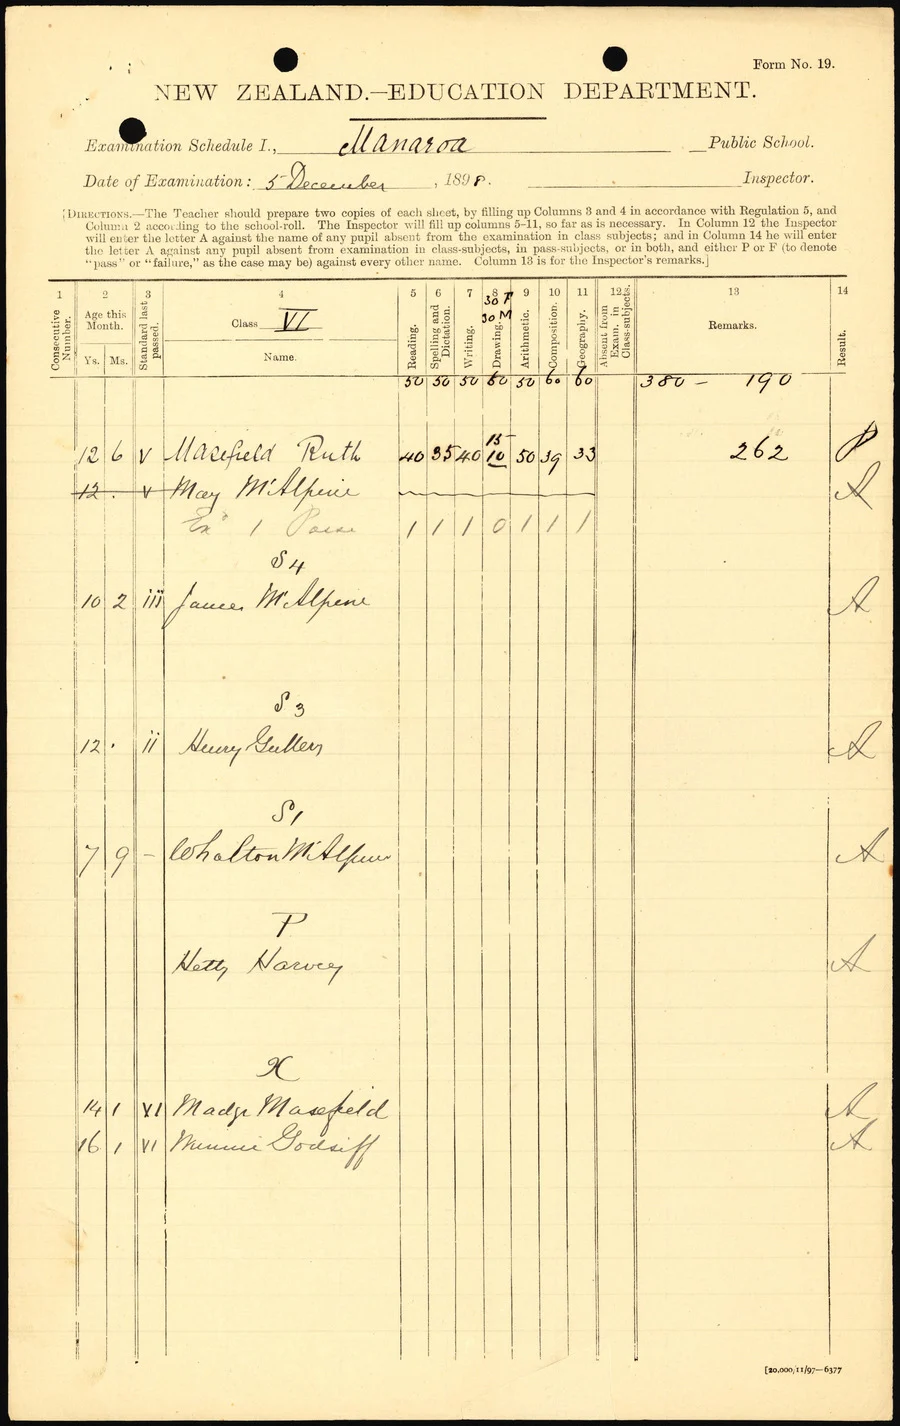 Form No. 19.
NEW ZEALAND.—EDUCATION DEPARTMENT.
Examination Schedule I., Manaroa Public School.
Date of Examination: 5 December, 1898. Inspector.
[DIRECTIONS.—The Teacher should prepare two copies of each sheet, by filling up Columns 3 and 4 in accordance with Regulation 5, and
Column 2 according to the school-roll. The Inspector will fill up columns 5-11, so far as is necessary. In Column 12 the Inspector
will enter the letter A against the name of any pupil absent from the examination in class subjects; and in Column 14 he will enter
the letter A against any pupil absent from examination in class-subjects, in pass-subjects, or in both, and either P or F (to denote
"pass" or "failure," as the case may be) against every other name. Column 13 is for the Inspector's remarks.]
1 2 3 4 5 6 7 8 9 10 11 12 13 14
Consecutive Number.
Age this Month.
Ys. Ms.
Standard last passed.
Class VI
Name.
Reading.
Spelling and Dictation.
Writing.
30 F
30 M
Drawing.
Arithmetic.
Composition.
Geography.
Absent from Exam. in Class-subjects.
Remarks.
Result.
50 50 50 60 50 60 60 380 — 190
12 6 V Masefield Ruth 40 35 40 15 10 50 39 33 262 P
12 . V May McAlpine A
Ex 1 Passe 1 1 1 0 1 1 1
S 4
10 2 iii James McAlpine A
S 3
12 . ii Henry Gullery A
S 1
7 9 – Whalton McAlpine A
P
Hetty Harvey A
X
14 1 VI Madge Masefield A
16 1 VI Winnie Godsiff A
[20,000/11/97—6377